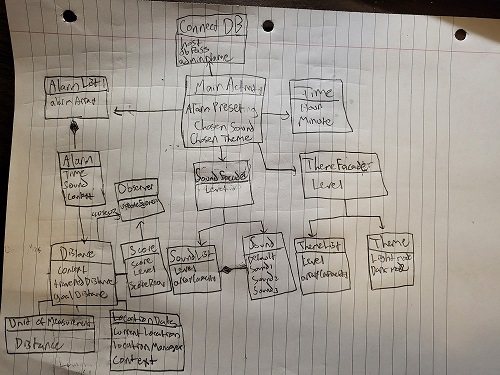 Connect DB
host
dbPass
adminName
Alarm List
alarm Array
Main Activity
Alarm Preset
Chosen Sound
Chosen Theme
Time
Hour
Minute
Alarm
Time
Sound
Context
Observer
updateScore
Sound Facade
Level
Theme Facade
Level
Distance
Context
traveled Distance
Goal Distance
Score
Score
Level
Sound List
Level
arrayCapacity
Sound
Default
Sound1
Sound2
Sound3
Theme List
Level
arrayCapacity
Theme
Light mode
Dark mode
Unit of Measurement
Distance
Location Data
Current Location
Location Manager
Context